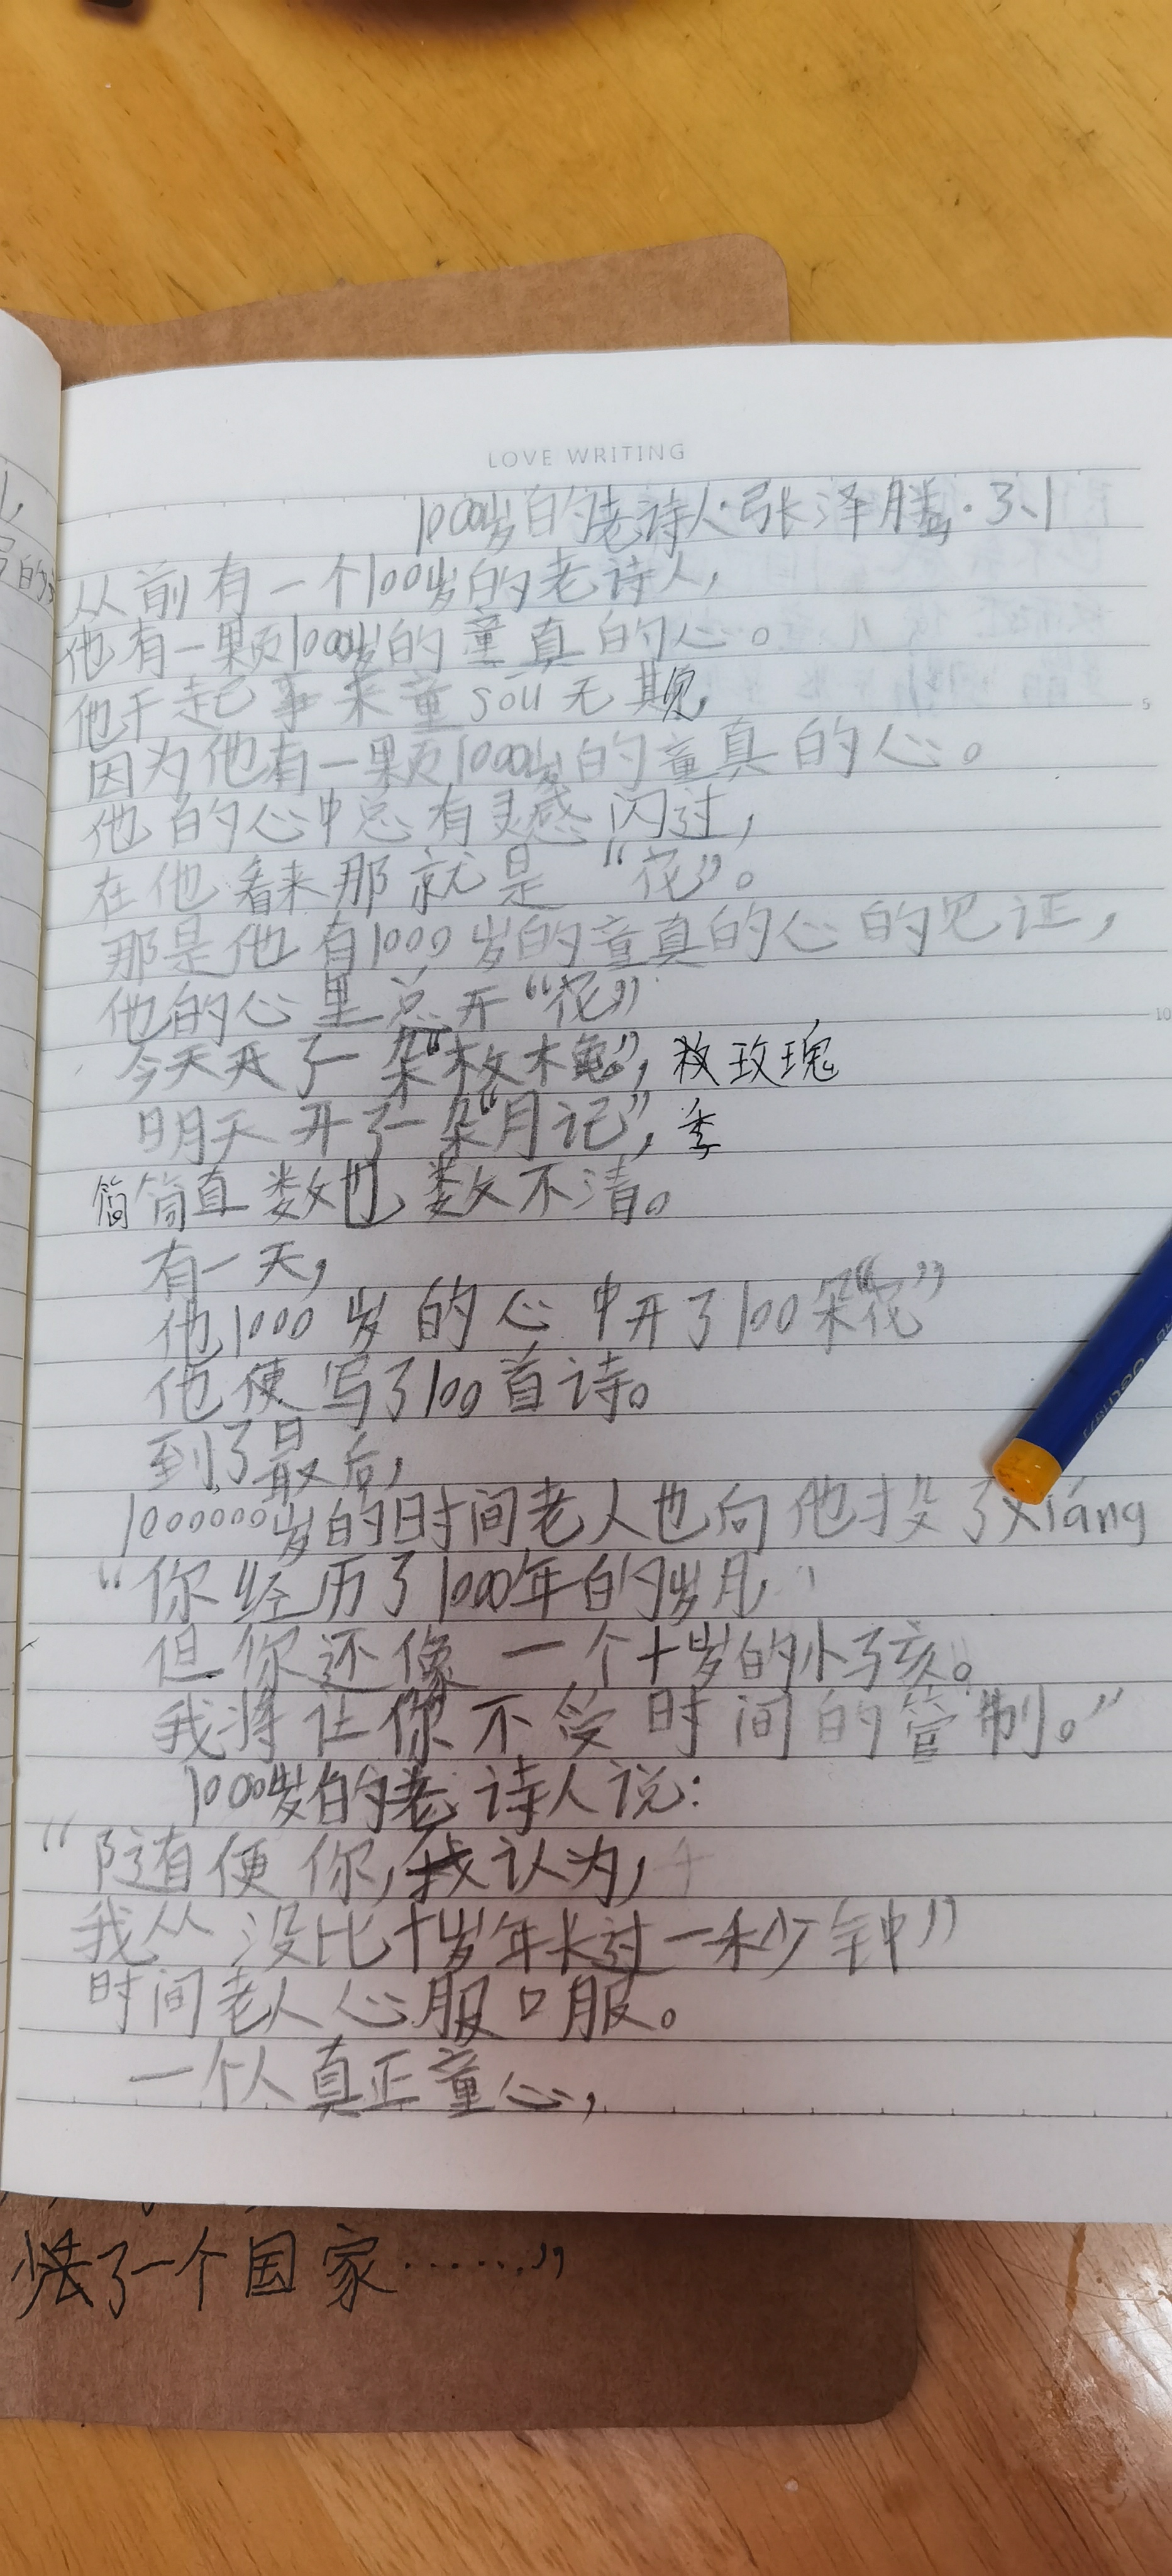 LOVE WRITING
1000岁的老诗人·张泽腾·3、1
从前有一个1000岁的老诗人，
他有一颗1000岁的童真的心。
他干起事来童sōu无欺，
因为他有一颗1000岁的童真的心。
5
他的心中总有灵感闪过，
在他看来那就是“花”。
那是他有1000岁的童真的心的见证，
他的心里总开“花”
10
今天天了一朵“枚木傀”，玫瑰
明天开了一朵“月记”，季
简简直数也数不清。
有一天，
他1000岁的心中开了100朵“花”
他便写了100首诗。
到了最后，
1000000岁的时间老人也向他投了xiáng
“你经历了1000年的岁月，
但你还像一个十岁的小孩。
我将让你不受时间的管制。”
1000岁的老诗人说：
“随便你，我认为，
我从没比十岁年长过一秒钟”
时间老人心服口服。
一个人真正童心，
了一个国家……”